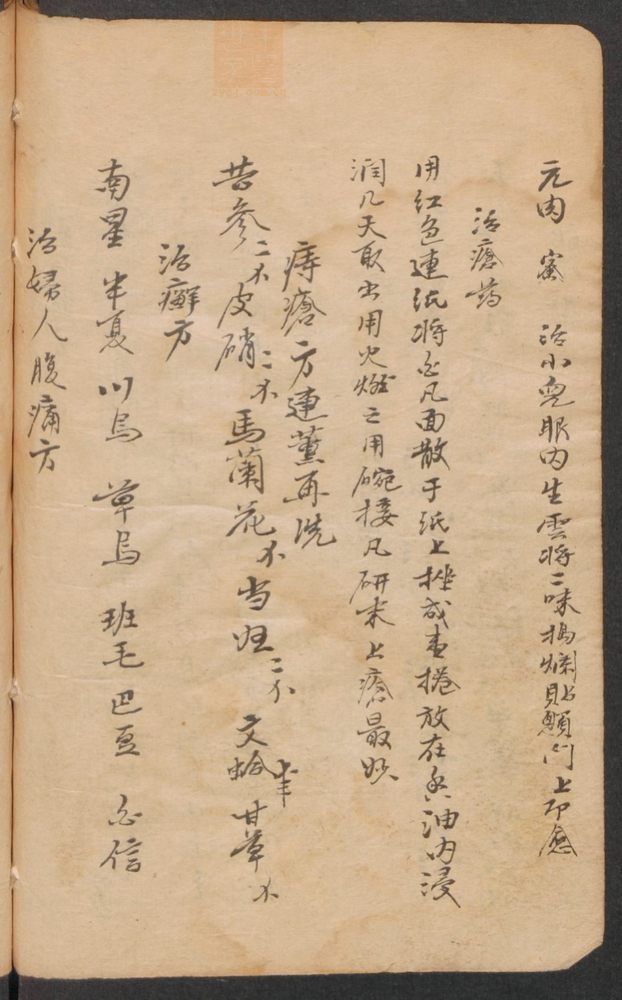 元肉 蜜 治小兒眼内生雲將二味搗爛貼顖門上即愈
治瘡药
用红色連紙將白凡面散于紙上捲成書捲放在香油内浸
润几天取出用火燃之用碗接凡研末上瘡最妙
痔瘡方連薰再洗
苦参二不皮硝二不馬蘭花不当归二不 文蛤半 甘草不
治癣方
南星 半夏 川烏 草烏 班毛 巴豆 白信
治婦人腹痛方